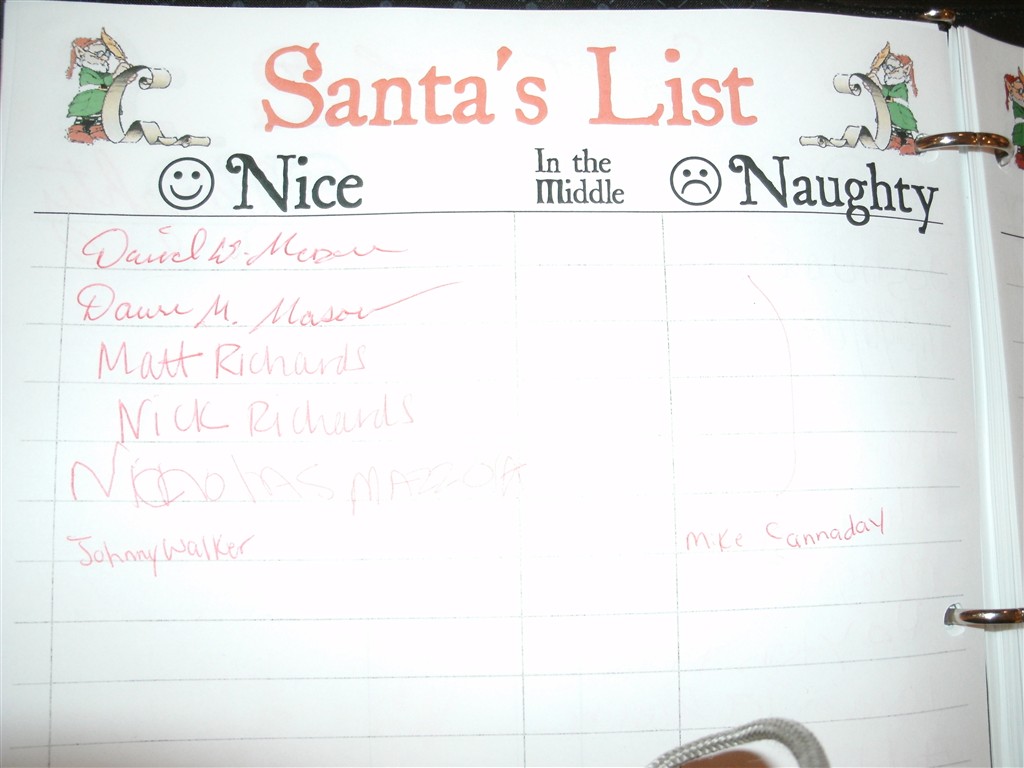 Santa's List
Nice In the Middle Naughty
David W. Mason
M. Mason
Matt Richards
Nick Richards
Nickolas
Johnny Walker Mike Cannaday